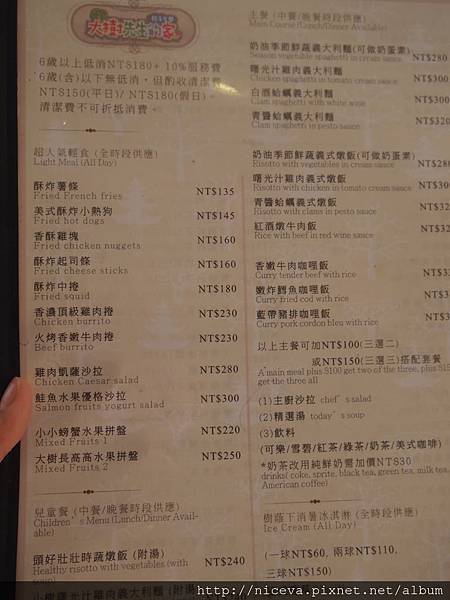 大樹先生的家
6歲以上低消NT$180+10%服務費
6歲(含)以下無低消，但酌收清潔費
NT$150(平日)/ NT$180(假日)。
清潔費不可折抵消費。
超人氣輕食 (全時段供應)
Light Meal (All Day)
酥炸薯條 NT$135
Fried French fries
美式酥炸小熱狗 NT$145
Fried hot dogs
香酥雞塊 NT$160
Fried chicken nuggets
酥炸起司條 NT$160
Fried cheese sticks
酥炸中捲 NT$180
Fried squid
香濃頂級雞肉捲 NT$230
Chicken burrito
火烤香嫩牛肉捲 NT$230
Beef burrito
雞肉凱薩沙拉 NT$280
Chicken Caesar salad
鮭魚水果優格沙拉 NT$300
Salmon fruits yogurt salad
小小螃蟹水果拼盤 NT$220
Mixed Fruits 1
大樹長高高水果拼盤 NT$250
Mixed Fruits 2
兒童餐 (中餐/晚餐時段供應)
Children's Menu(Lunch/Dinner Avail-
able)
頭好壯壯時蔬燉飯 (附湯) NT$240
Healthy risotto with vegetables (with
soup)
主餐 (中餐/晚餐時段供應)
Main Course(Lunch/Dinner Available)
奶油季節鮮蔬義大利麵(可做奶蛋素) NT$280
Season vegetable spaghetti in cream sauce
曙光汁雞肉義大利麵 NT$300
Chicken spaghetti in tomato cream sauce
白酒蛤蠣義大利麵 NT$300
Clam spaghetti with white wine
青醬蛤蠣義大利麵 NT$320
Clam spaghetti in pesto sauce
奶油季節鮮蔬義式燉飯(可做奶蛋素) NT$280
Risotto with vegetables in cream sauce
曙光汁雞肉義式燉飯 NT$300
Risotto with chicken in tomato cream sauce
青醬蛤蠣義式燉飯 NT$32
Risotto with clams in pesto sauce
紅酒燉牛肉飯 NT$32
Rice with beef in red wine sauce
香嫩牛肉咖哩飯 NT$3
Curry tender beef with rice
嫩炸鱈魚咖哩飯 NT$3
Curry fried cod with rice
藍帶豬排咖哩飯 NT$3
Curry pork cordon bleu with rice
以上主餐可加NT$100(三選二)
或NT$150(三選三)搭配套餐
A main meal plus $100 get two of the three, plus $15
get the three all
(1)主廚沙拉 chef's salad
(2)精選湯 today's soup
(3)飲料
(可樂/雪碧/紅茶/綠茶/奶茶/美式咖啡)
*奶茶改用純鮮奶需加價NT$30
drinks( coke, sprite, black tea, green tea, milk tea,
American coffee)
樹蔭下消暑冰淇淋 (全時段供應)
Ice Cream (All Day)
(一球NT$60, 兩球NT$110,
三球NT$150)
http://niceva.pixnet.net/album